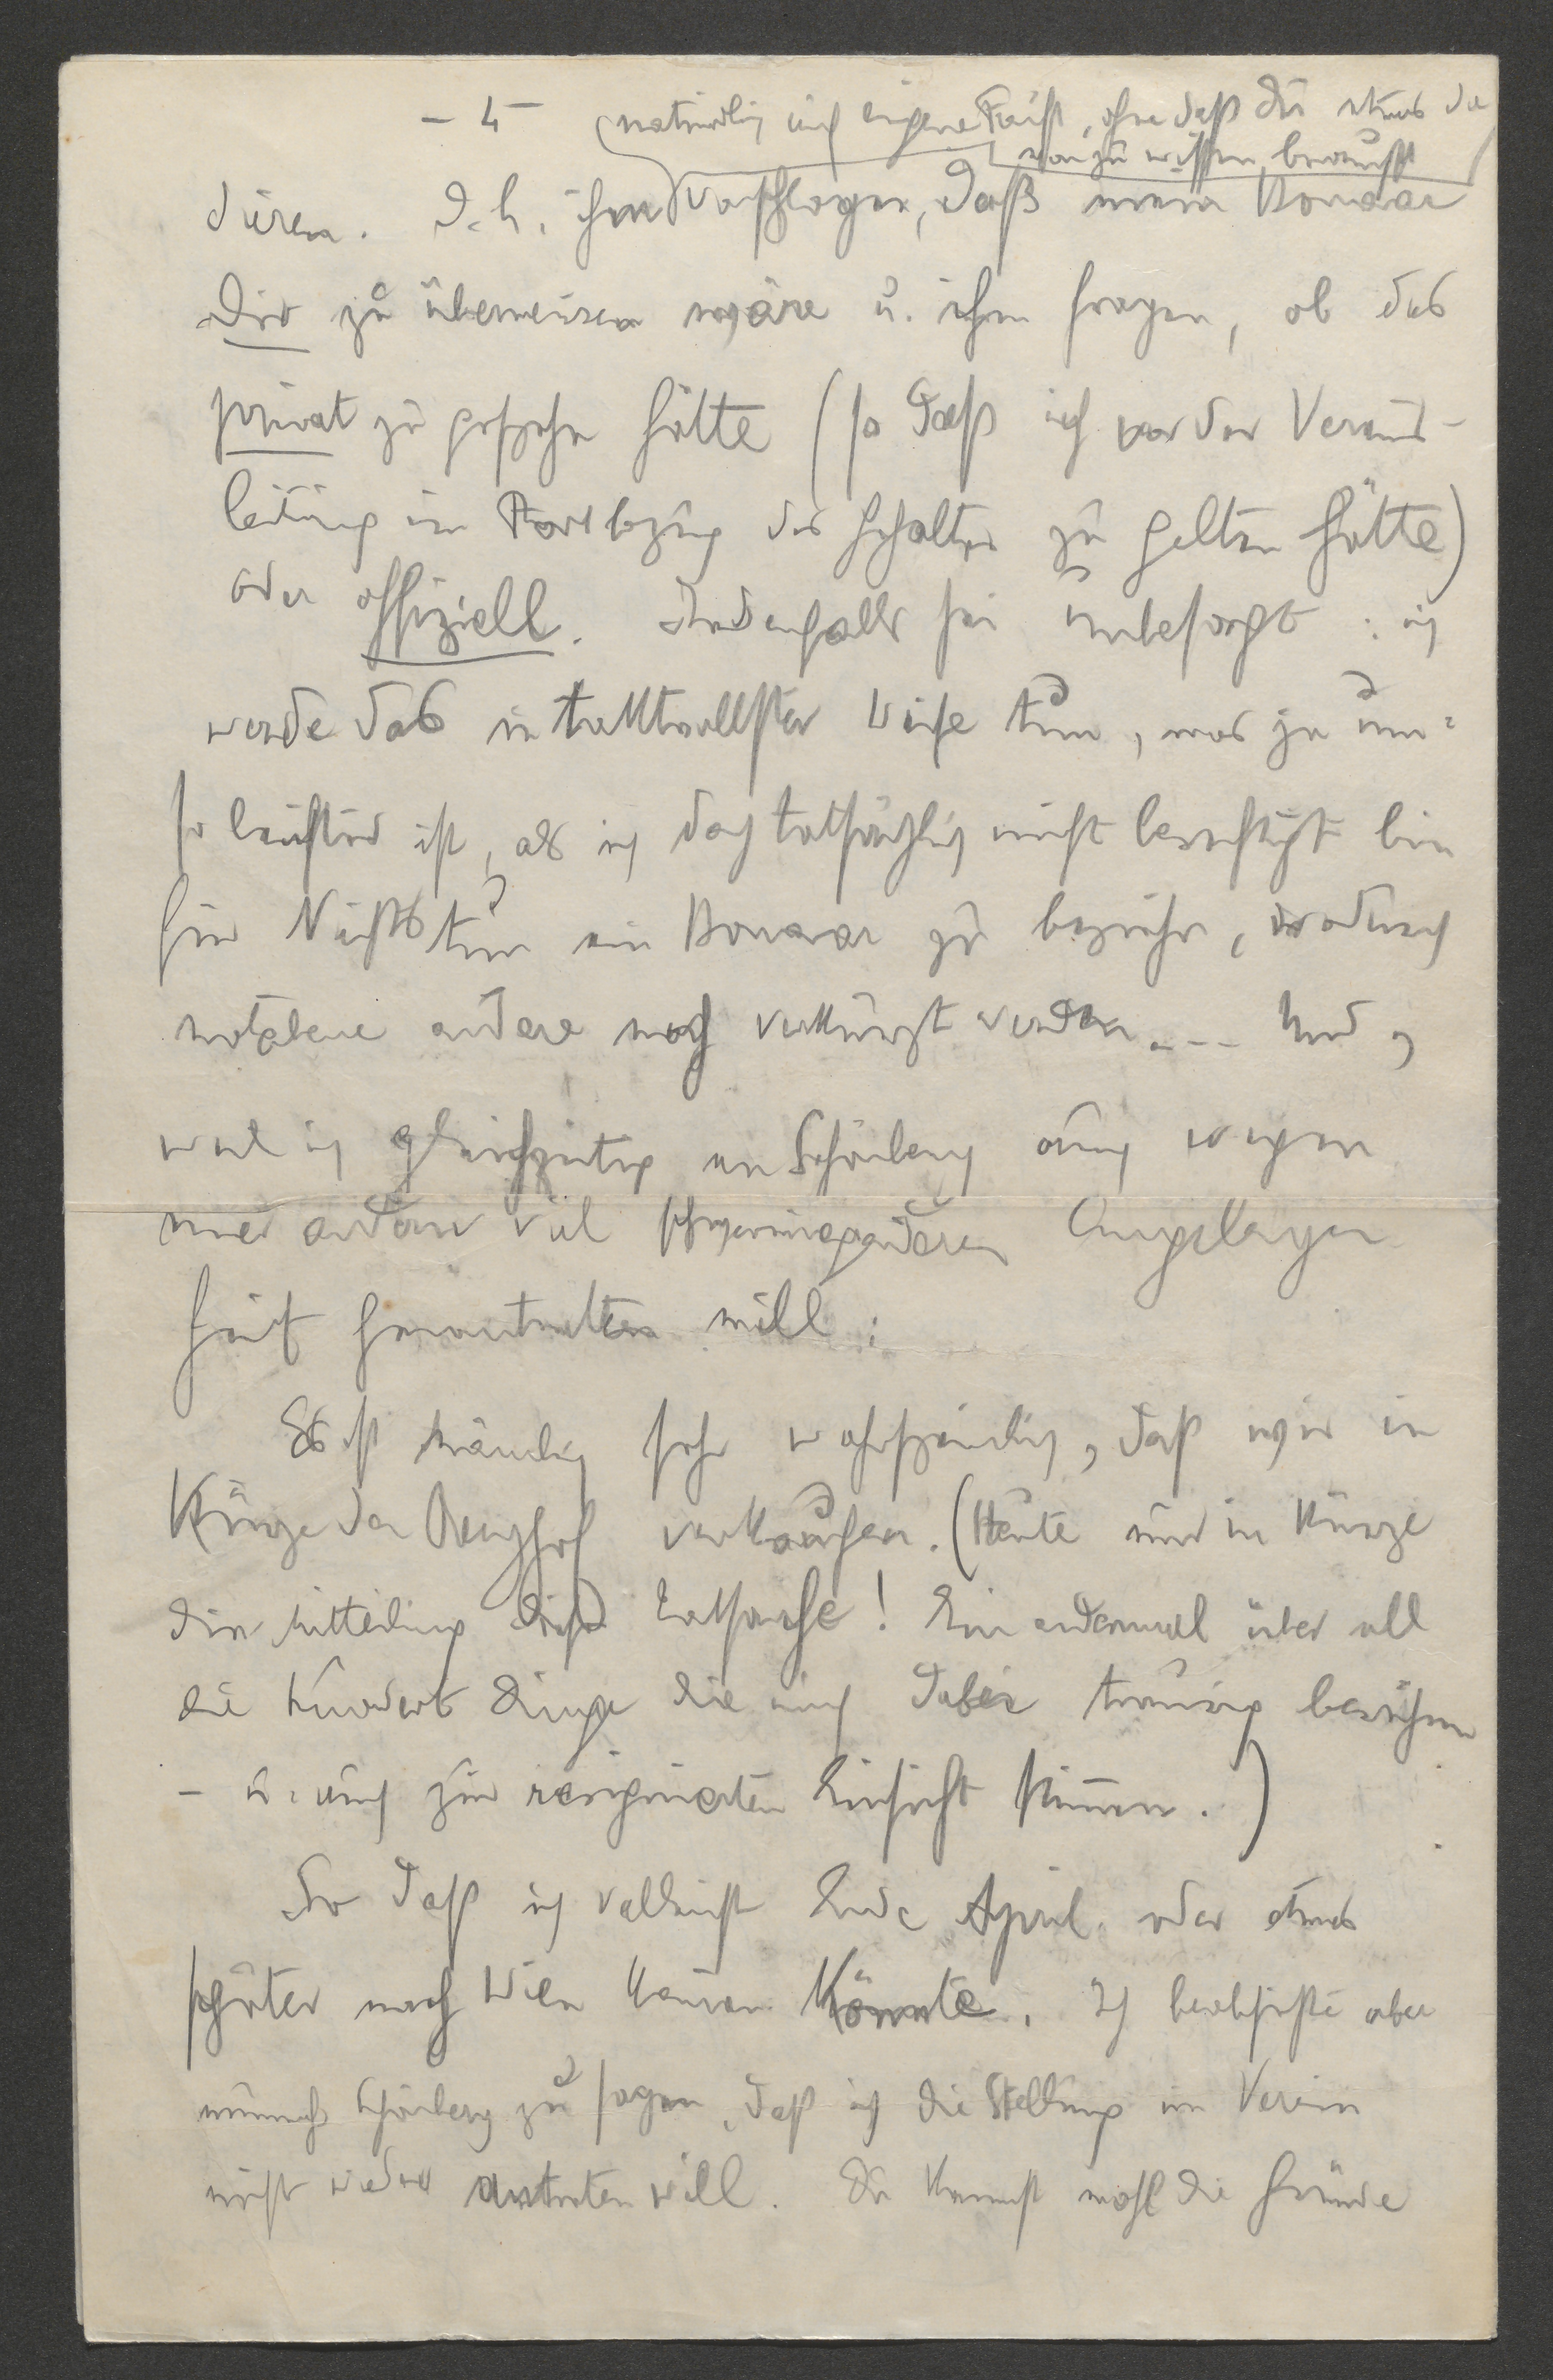 - 4 -
(natürlich auf eigene Faust, ohne daß Du etwas da
von zu wissen brauchst)
dieren. D. h. ihm vorschlagen, daß mein Honorar
Dir zu überweisen wäre u. ihn fragen, ob das
privat zu geschehn hätte (so daß ich vor der Vereins-
leitung im Fortbezug des Gehaltes zu gelten hätte)
oder offiziell. Jedenfalls sei unbesorgt: ich
werde das in taktvollster Weise tun, was ja um-
so leichter ist, als ich doch tatsächlich nicht berechtigt bin
für Nichtstun ein Honorar zu beziehn, wodurch
notabene andere noch verkürzt werden ... Und,
weil ich gleichzeitig an Schönberg auch wegen
einer andern viel schwerwiegenderen Angelegen
heit herantreten will:
Es ist nämlich sehr wahrscheinlich, daß wir in
Kürze den Berghof verkaufen. (Heute nur in Kürze
die Mitteilung dieser Tatsache! Ein andermal über all
die hundert Dinge die mich dabei traurig berühren
- u. auch zur resignierten Einsicht stimmen.)
So daß ich vielleicht Ende April oder etwas
später nach Wien kommen könnte. Ich beabsichtige aber
nunmehr Schönberg zu sagen, daß ich die Stellung im Verein
nicht wieder antreten will. Du kennst wohl die Gründe